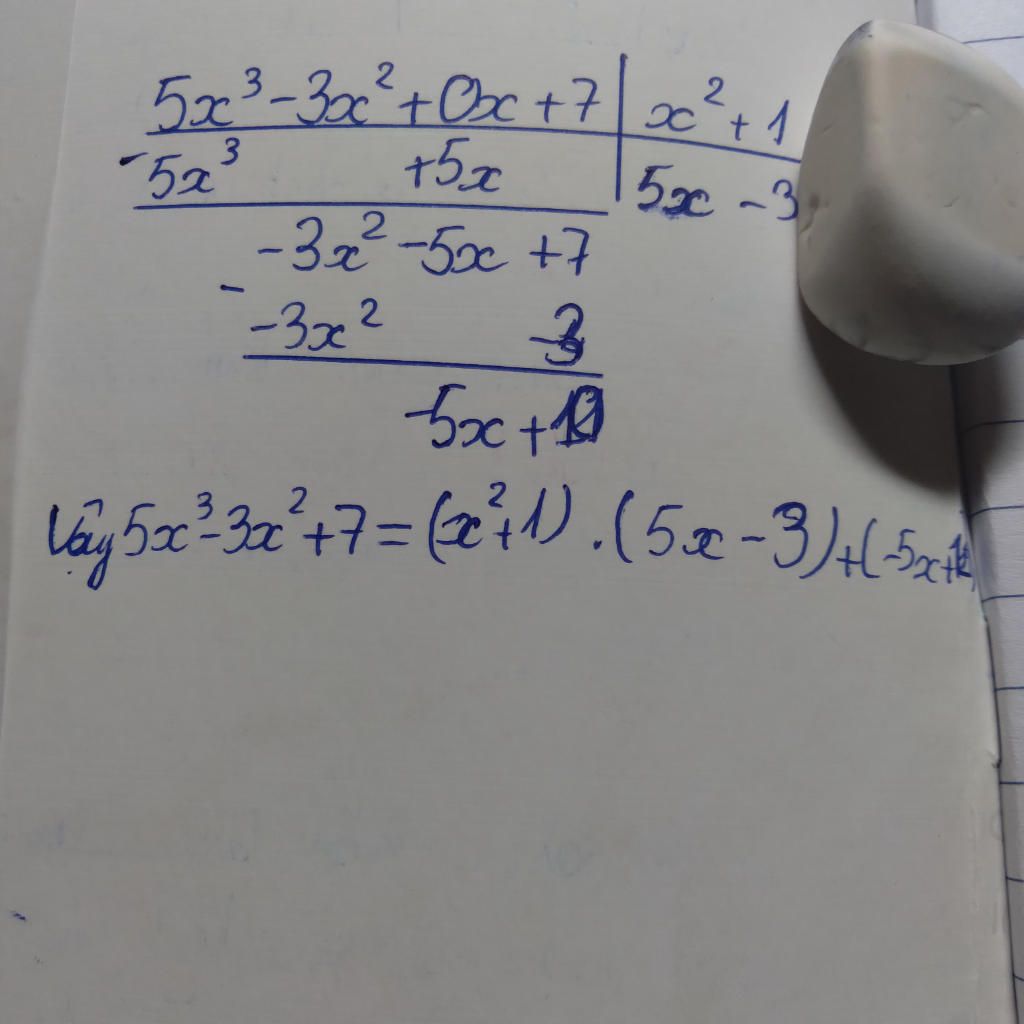 5x³ - 3x² + 0x + 7 | x² + 1
- 5x³ + 5x | 5x - 3
-3x² - 5x + 7
-
-3x² - 3
-5x + 10
Vậy 5x³ - 3x² + 7 = (x² + 1) . (5x - 3) + (-5x + 10)